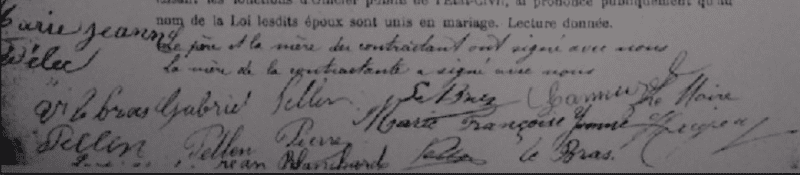 faisant les fonctions d'Officier public de l'État-Civil, ai prononcé publiquement qu'au
nom de la Loi lesdits époux sont unis en mariage. Lecture donnée.
Marie Jeanne
Le père et la mère du contractant ont signé avec nous
La mère de la contractante a signé avec nous
Le Bras Gabriel Pellen Le Maire
Marie Françoise Yvonne
Pellen Pellen Pierre
Jean Blanchard Pellen Le Bras.